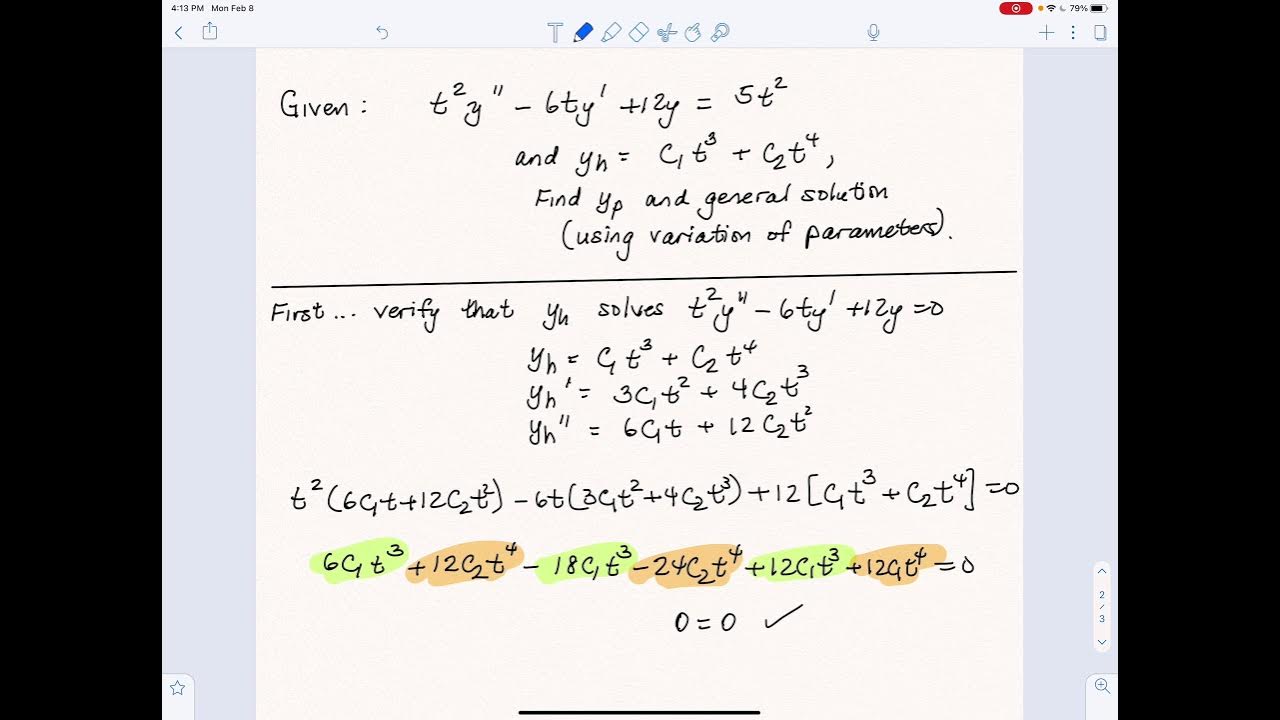 4:13 PM Mon Feb 8 79%
T
Given: t²y" - 6ty' + 12y = 5t²
and yₕ = C₁t³ + C₂t⁴,
Find yₚ and general solution
(using variation of parameters).
First... verify that yₕ solves t²y" - 6ty' + 12y = 0
yₕ = C₁t³ + C₂t⁴
yₕ' = 3C₁t² + 4C₂t³
yₕ" = 6C₁t + 12C₂t²
t²(6C₁t + 12C₂t²) - 6t(3C₁t² + 4C₂t³) + 12[C₁t³ + C₂t⁴] = 0
6C₁t³ + 12C₂t⁴ - 18C₁t³ - 24C₂t⁴ + 12C₁t³ + 12C₁t⁴ = 0
0 = 0 ✓
2
/
3